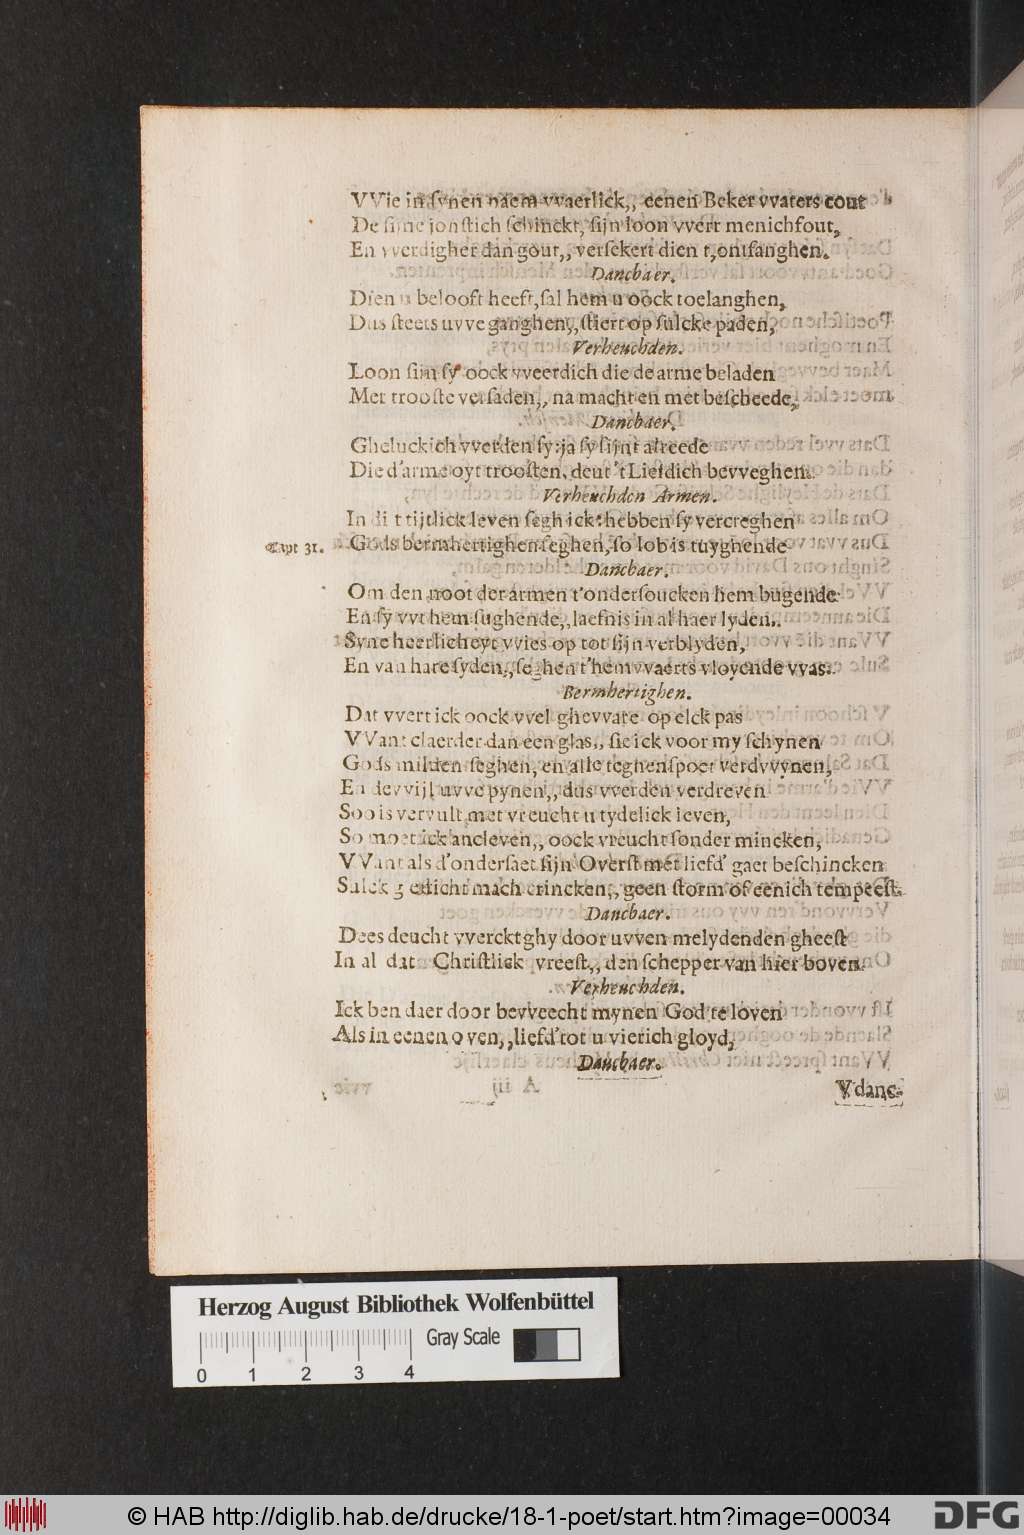 VVie in synen naem vvaerlick,, eenen Beker vvaters cout
De sijne jonstich schinckt, sijn loon vvert menichfout,
En vverdigher dan gout,, versekert dien t,ontfanghen.
Dancbaer.
Dien u belooft heeft, sal hem u oock toelanghen,
Dus steets uvve ganghen,, stiert op sulcke paden,
Verheuchden.
Loon sijn sy oock vveerdich die de arme beladen
Met trooste versaden,, na macht en met bescheede,
Dancbaer.
Gheluckich vverden sy: ja sy sijnt alreede
Die d'arme oyt troosten, deur 't Liefdich bevveghen.
Verheuchden Armen.
In dit tijtlick leven segh ick: hebben sy vercreghen
Capt 31. Gods bermhertighen seghen, so Iob is tuyghende
Dancbaer.
Om den noot der armen t'ondersoucken hem bugende
En sy vvt hem sughende,, laefnis in al haer lyden.
Syne heerlicheyt vvies op tot sijn verblyden,
En van hare syden,, seghen t'hemvvaerts vloyende vvas.
Bermhertighen.
Dat vvert ick oock vvel ghevvare op elck pas
VVant claerder dan een glas,, sie ick voor my schynen
Gods milden seghen, en alle teghenspoet verdvvynen,
En devvijl uvve pynen,, dus vverden verdreven
Soo is vervult met vreucht u tydelick leven,
So moet ick ancleven,, oock vreucht sonder mincken,
VVant als d'ondersaet sijn Overst mét liefd' gaet beschincken
Sulck gedicht mach crincken,, geen storm of eenich tempeest.
Dancbaer.
Dees deucht vverckt ghy door uvven melydenden gheest
In al dat Christlick vreest,, den schepper van hier boven.
Verheuchden.
Ick ben daer door bevveecht mynen God te loven
Als in eenen oven,, liefd' tot u vierich gloyd,
Dancbaer.
V danc-
Herzog August Bibliothek Wolfenbüttel
Gray Scale
0 1 2 3 4
© HAB http://diglib.hab.de/drucke/18-1-poet/start.htm?image=00034
DFG